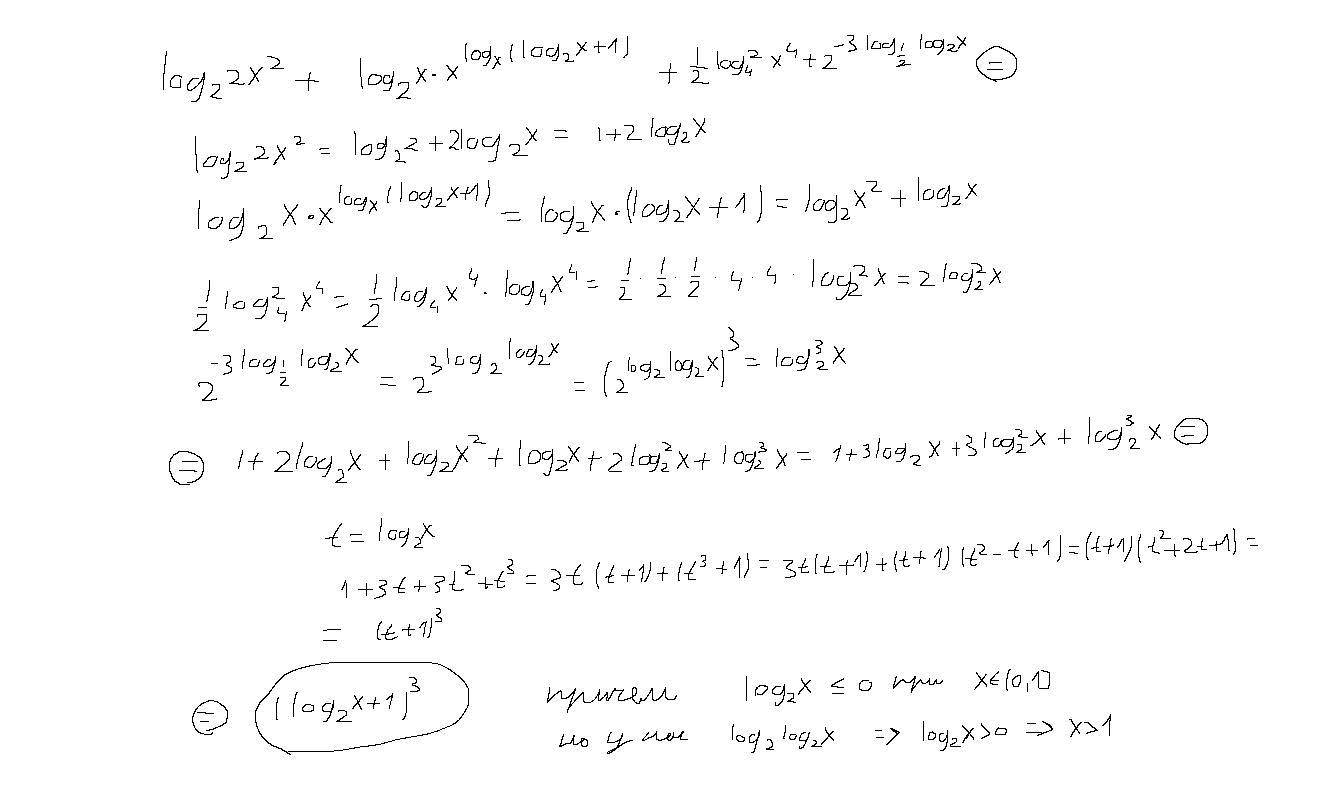 log₂2x² + log₂x·x^(log_x(log₂x+1)) + 1/2 log₄²x⁴ + 2^(-3log_(1/2)log₂x) =
log₂2x² = log₂2 + 2log₂x = 1+2log₂x
log₂x·x^(log_x(log₂x+1)) = log₂x·(log₂x+1) = log₂x² + log₂x
1/2 log₄²x⁴ = 1/2 log₄x⁴·log₄x⁴ = 1/2·1/2·1/2·4·4·log₂²x = 2log₂²x
2^(-3log_(1/2)log₂x) = 2^(3log₂log₂x) = (2^(log₂log₂x))³ = log₂³x
= 1+2log₂x + log₂x² + log₂x + 2log₂²x + log₂³x = 1+3log₂x+3log₂²x + log₂³x =
t = log₂x
1+3t+3t²+t³ = 3t(t+1)+(t³+1) = 3t(t+1)+(t+1)(t²-t+1) = (t+1)(t²+2t+1) =
= (t+1)³
= (log₂x+1)³ причем log₂x ≤ 0 при x∈(0,1]
но у нас log₂log₂x => log₂x>0 => x>1